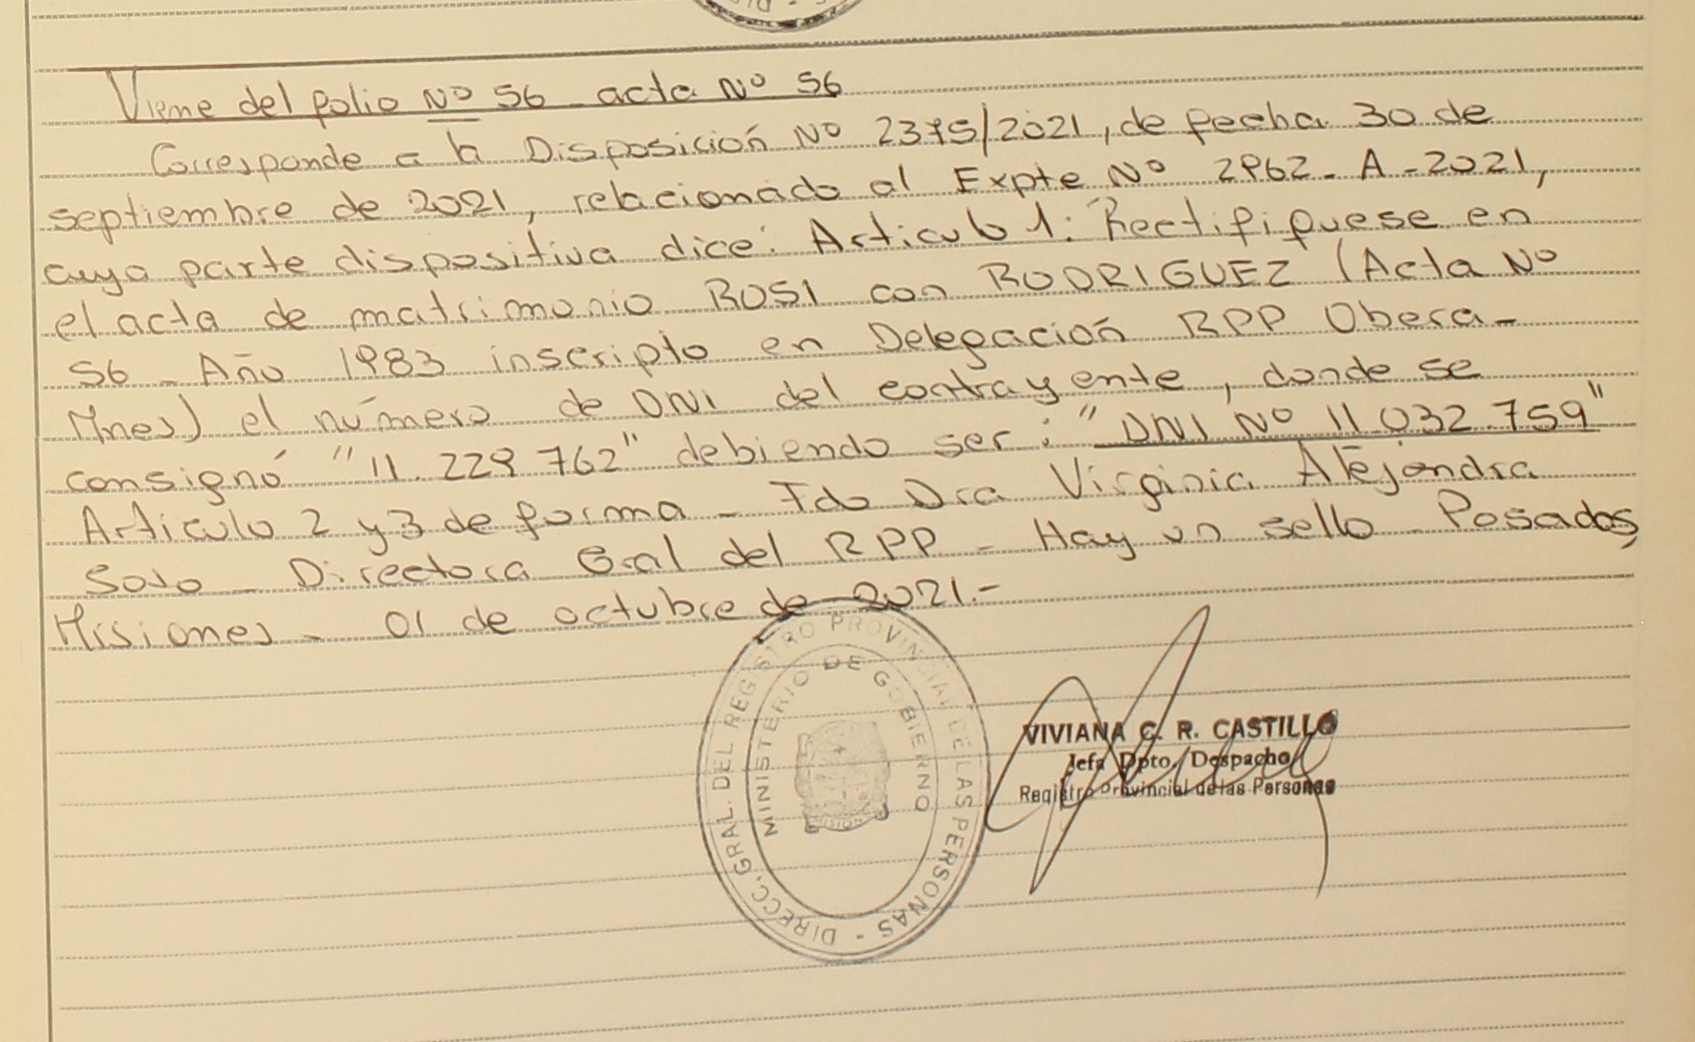 Viene del folio Nº 56 acta Nº 56
Corresponde a la Disposición Nº 2375/2021, de fecha 30 de
septiembre de 2021, relacionado al Expte Nº 2962-A-2021,
cuya parte dispositiva dice: Articulo 1: Rectifiquese en
el acta de matrimonio ROSI con RODRIGUEZ (Acta Nº
56 - Año 1983 inscripto en Delegación RPP Obera -
Mnes) el número de DNI del contrayente, donde se
consignó "11.229.762" debiendo ser: "DNI Nº 11.032.759"
Articulo 2 y 3 de forma - Fdo Dra Virginia Alejandra
Soto - Directora Gral del RPP - Hay un sello - Posadas,
Misiones - 01 de octubre de 2021.-
DIRECC. GRAL. DEL REGISTRO PROVINCIAL DE LAS PERSONAS -
MINISTERIO DE GOBIERNO
VIVIANA C. R. CASTILLO
Jefa Dpto. Despacho
Registro Provincial de las Personas